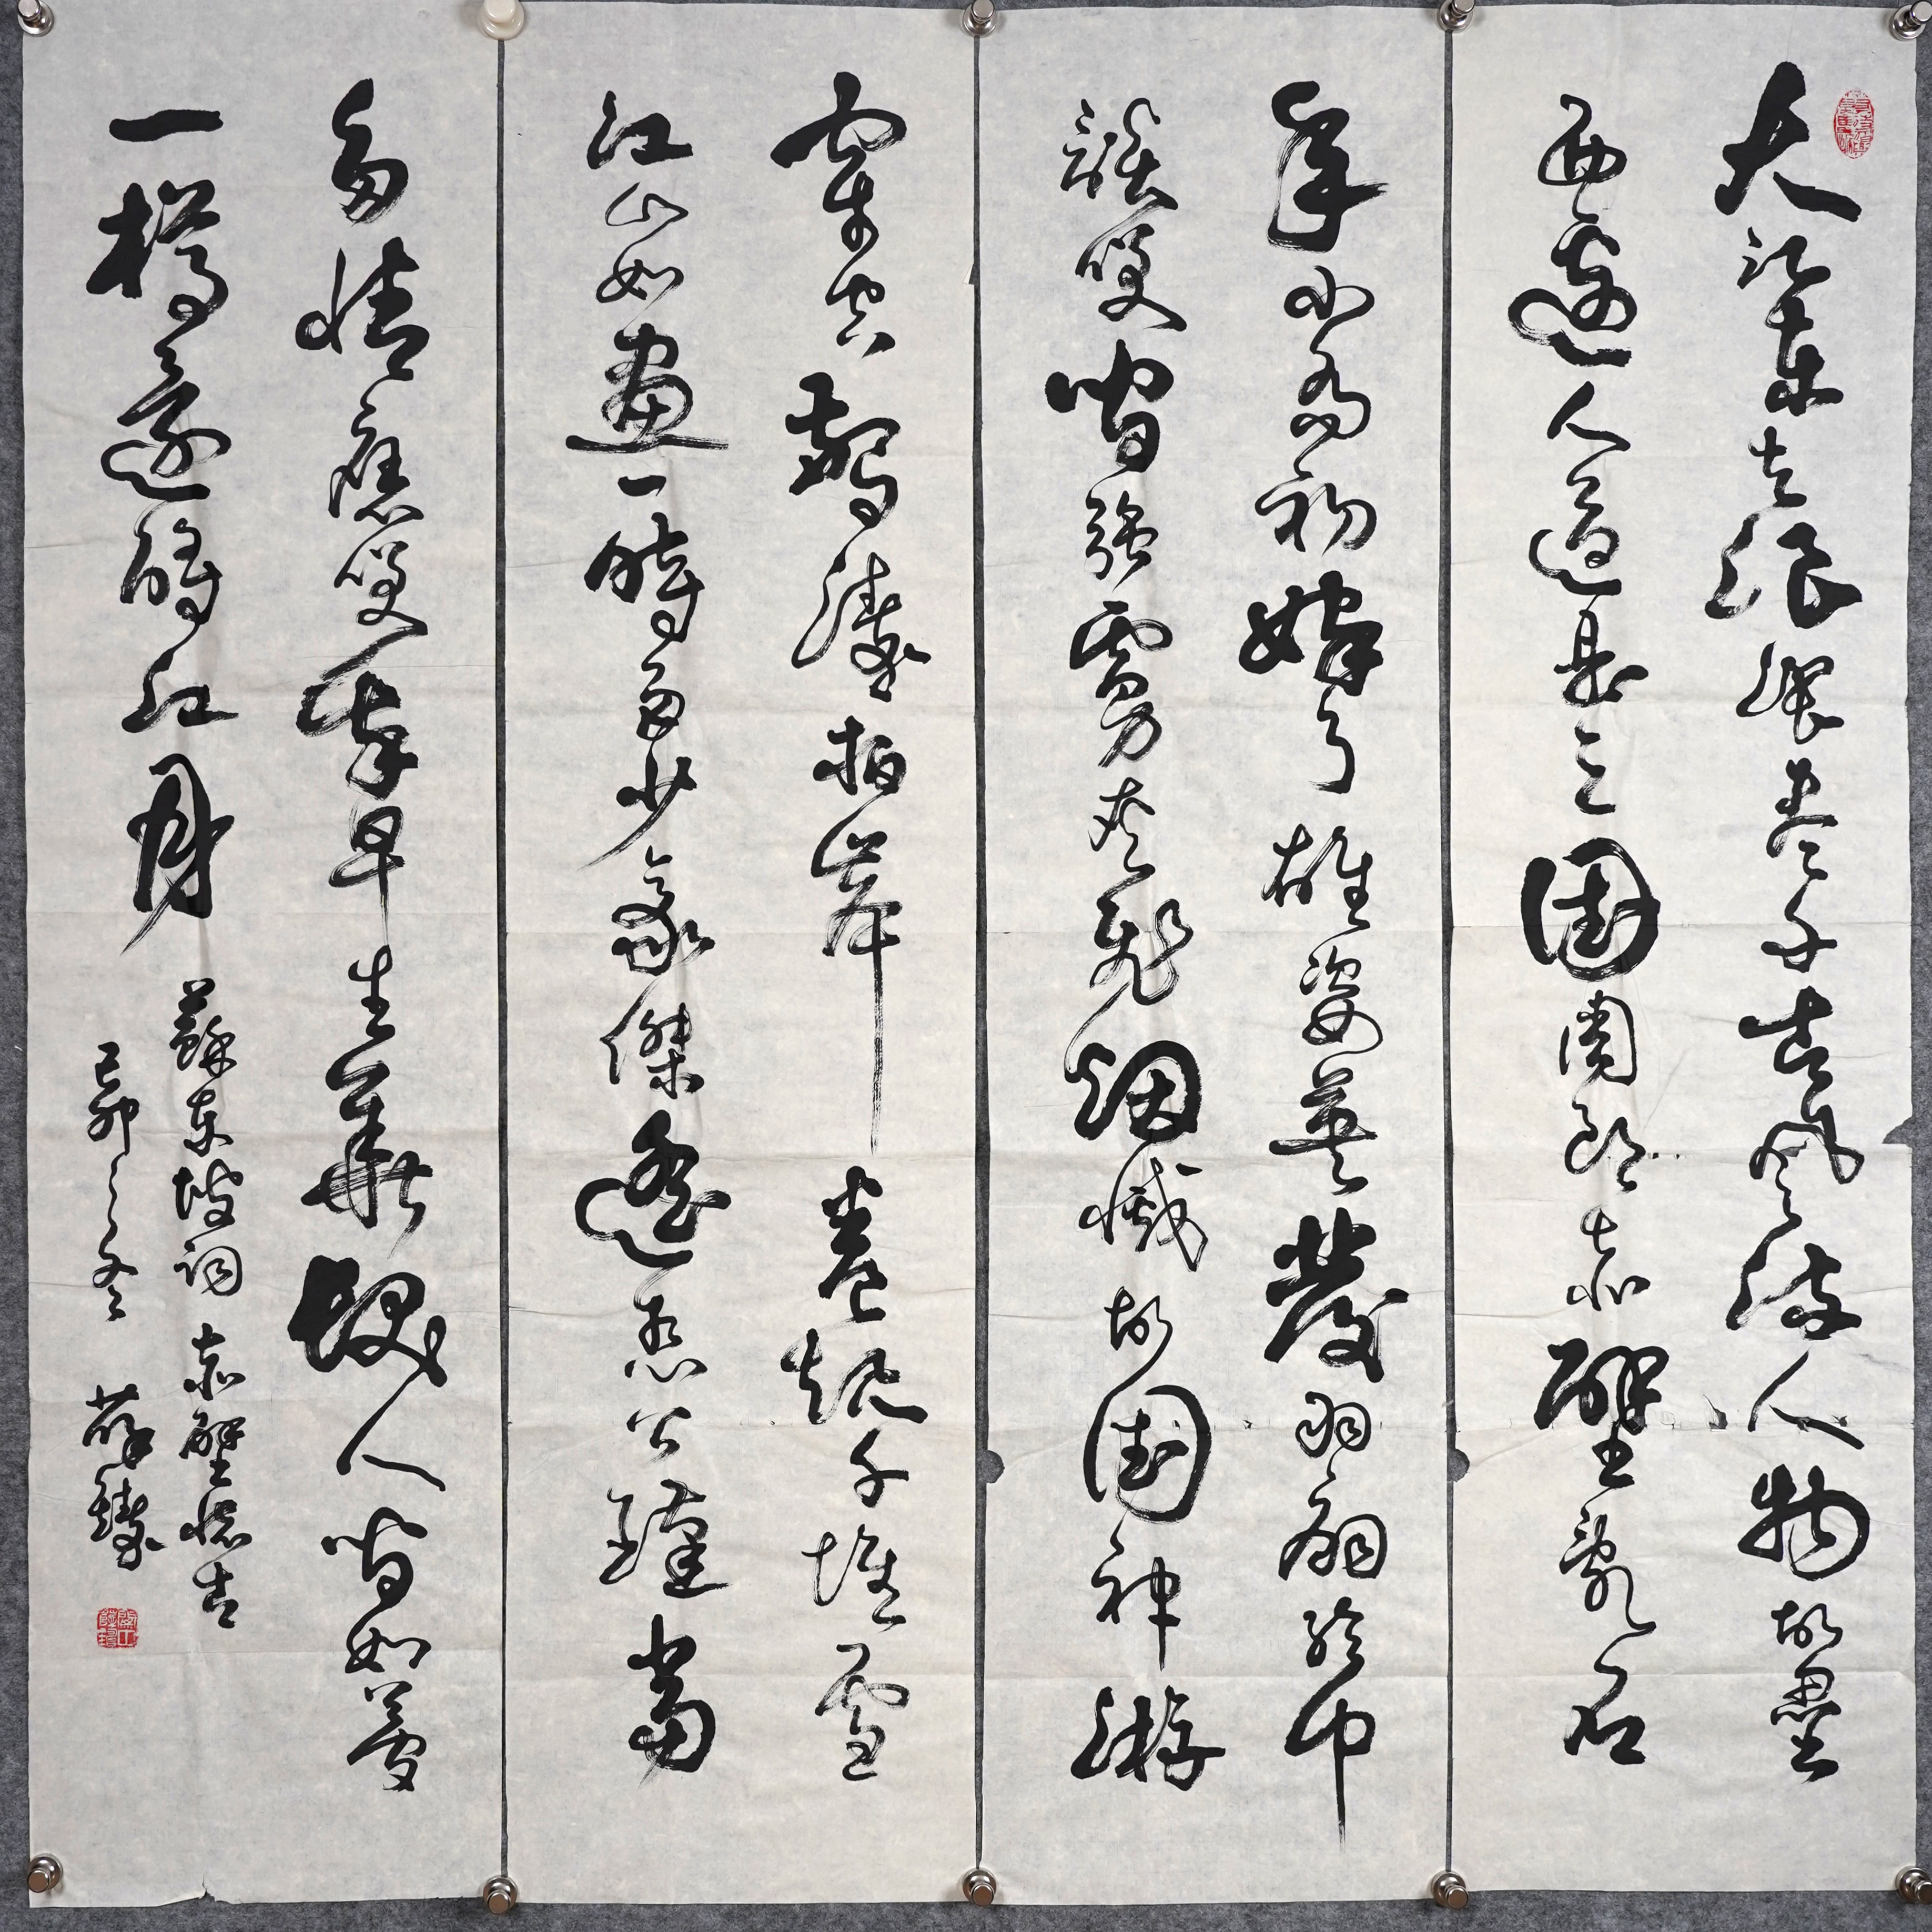 大江東去浪淘盡千古風流人物故壘
西邊人道是三國周郎赤壁亂石
年小喬初嫁了雄姿英發羽扇綸巾
談笑間強虜灰飛烟滅故國神游
穿空驚濤拍岸卷起千堆雪
江山如畫一時多少豪傑遥想公瑾當
多情應笑我早生華髮人間如夢
一樽還酹江月
蘇東坡詞 赤壁懷古
己卯之冬 薛